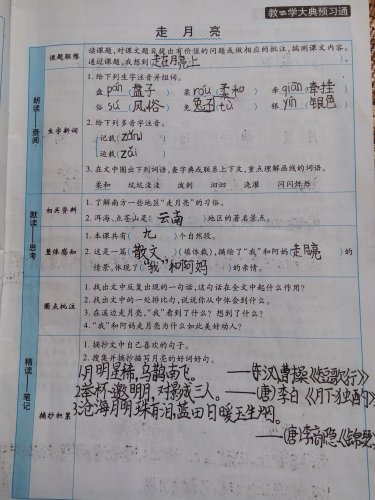 教与学大典预习通
走月亮
课题联想
读课题,对课文题目提出有价值的问题或做相应的批注,揣测课文内容。
通过课题,我想到了走在月亮上。
朗读—查阅
生字新词
1. 给下列生字注音并组词。
盘 pán 盘子 柔 róu 柔和 牵 qiān 牵挂
俗 sú 风俗 兔子 tù 银 yín 银色
2. 给下列多音字注音。
记载 zǎi
运载 zài
3. 在文中圈出下列词语,查字典或联系上下文,重点理解画线的词语。
柔和 坑坑洼洼 泼剌 汩汩 浇灌 闪闪烁烁
默读—思考
相关资料
1. 了解南方一些地区“走月亮”的习俗。
2. 洱海、点苍山是(云南)地区的著名景点。
整体感知
1. 本课共有(九)个自然段。
2. 这是一篇(散文)(填体裁),描绘了“我”和阿妈(走月亮)的
情景,体现了(“我”和阿妈)的亲情。
圈点批注
1. 找出文中反复出现的一句话,这句话在全文中起什么作用?
2. 找出文中的一处排比句,说说你从中体会到什么。
3. 在溪边走月亮,“我”看到了什么?想到了什么?
4. “我”和阿妈走月亮为什么如此美好动人?
精读—笔记
摘抄积累
1. 摘抄文中自己喜欢的句子。
2. 搜集并摘抄描写月亮的好词好句。
1.月明星稀,乌鹊南飞。——(东汉)曹操《短歌行》
2.举杯邀明月,对影成三人。——(唐)李白《月下独酌》
3.沧海月明珠有泪,蓝田日暖玉生烟。
——(唐)李商隐《锦瑟》